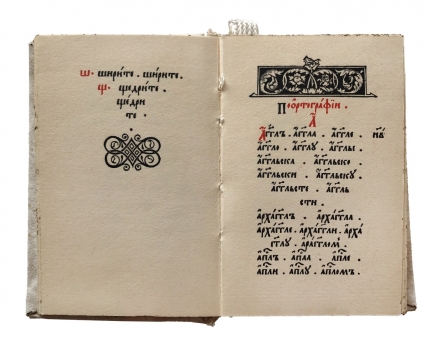 ш · ширите . ширите .
щ · щедрите .
щедри
те .
По ѻртографїи .
А
А҆́гг҃лъ . а҆́гг҃ла . а҆́гг҃ле .
а҆́гг҃ло . а҆́гг҃лу . а҆́гг҃лы .
а҆́гг҃льска . а҆́гг҃льско .
а҆́гг҃льски . а҆́гг҃льску .
а҆́гг҃льсте . а҆́гг҃ль
сти .
а҆рха́гг҃лъ . а҆рха́гг҃ла .
а҆рха́гг҃ле . а҆рха́гг҃ли . а҆рха́
гг҃лу . а҆рха́гг҃лом .
а҆п҃лъ . а҆п҃ла . а҆п҃ле .
а҆п҃ли . а҆п҃лу . а҆п҃ломъ .